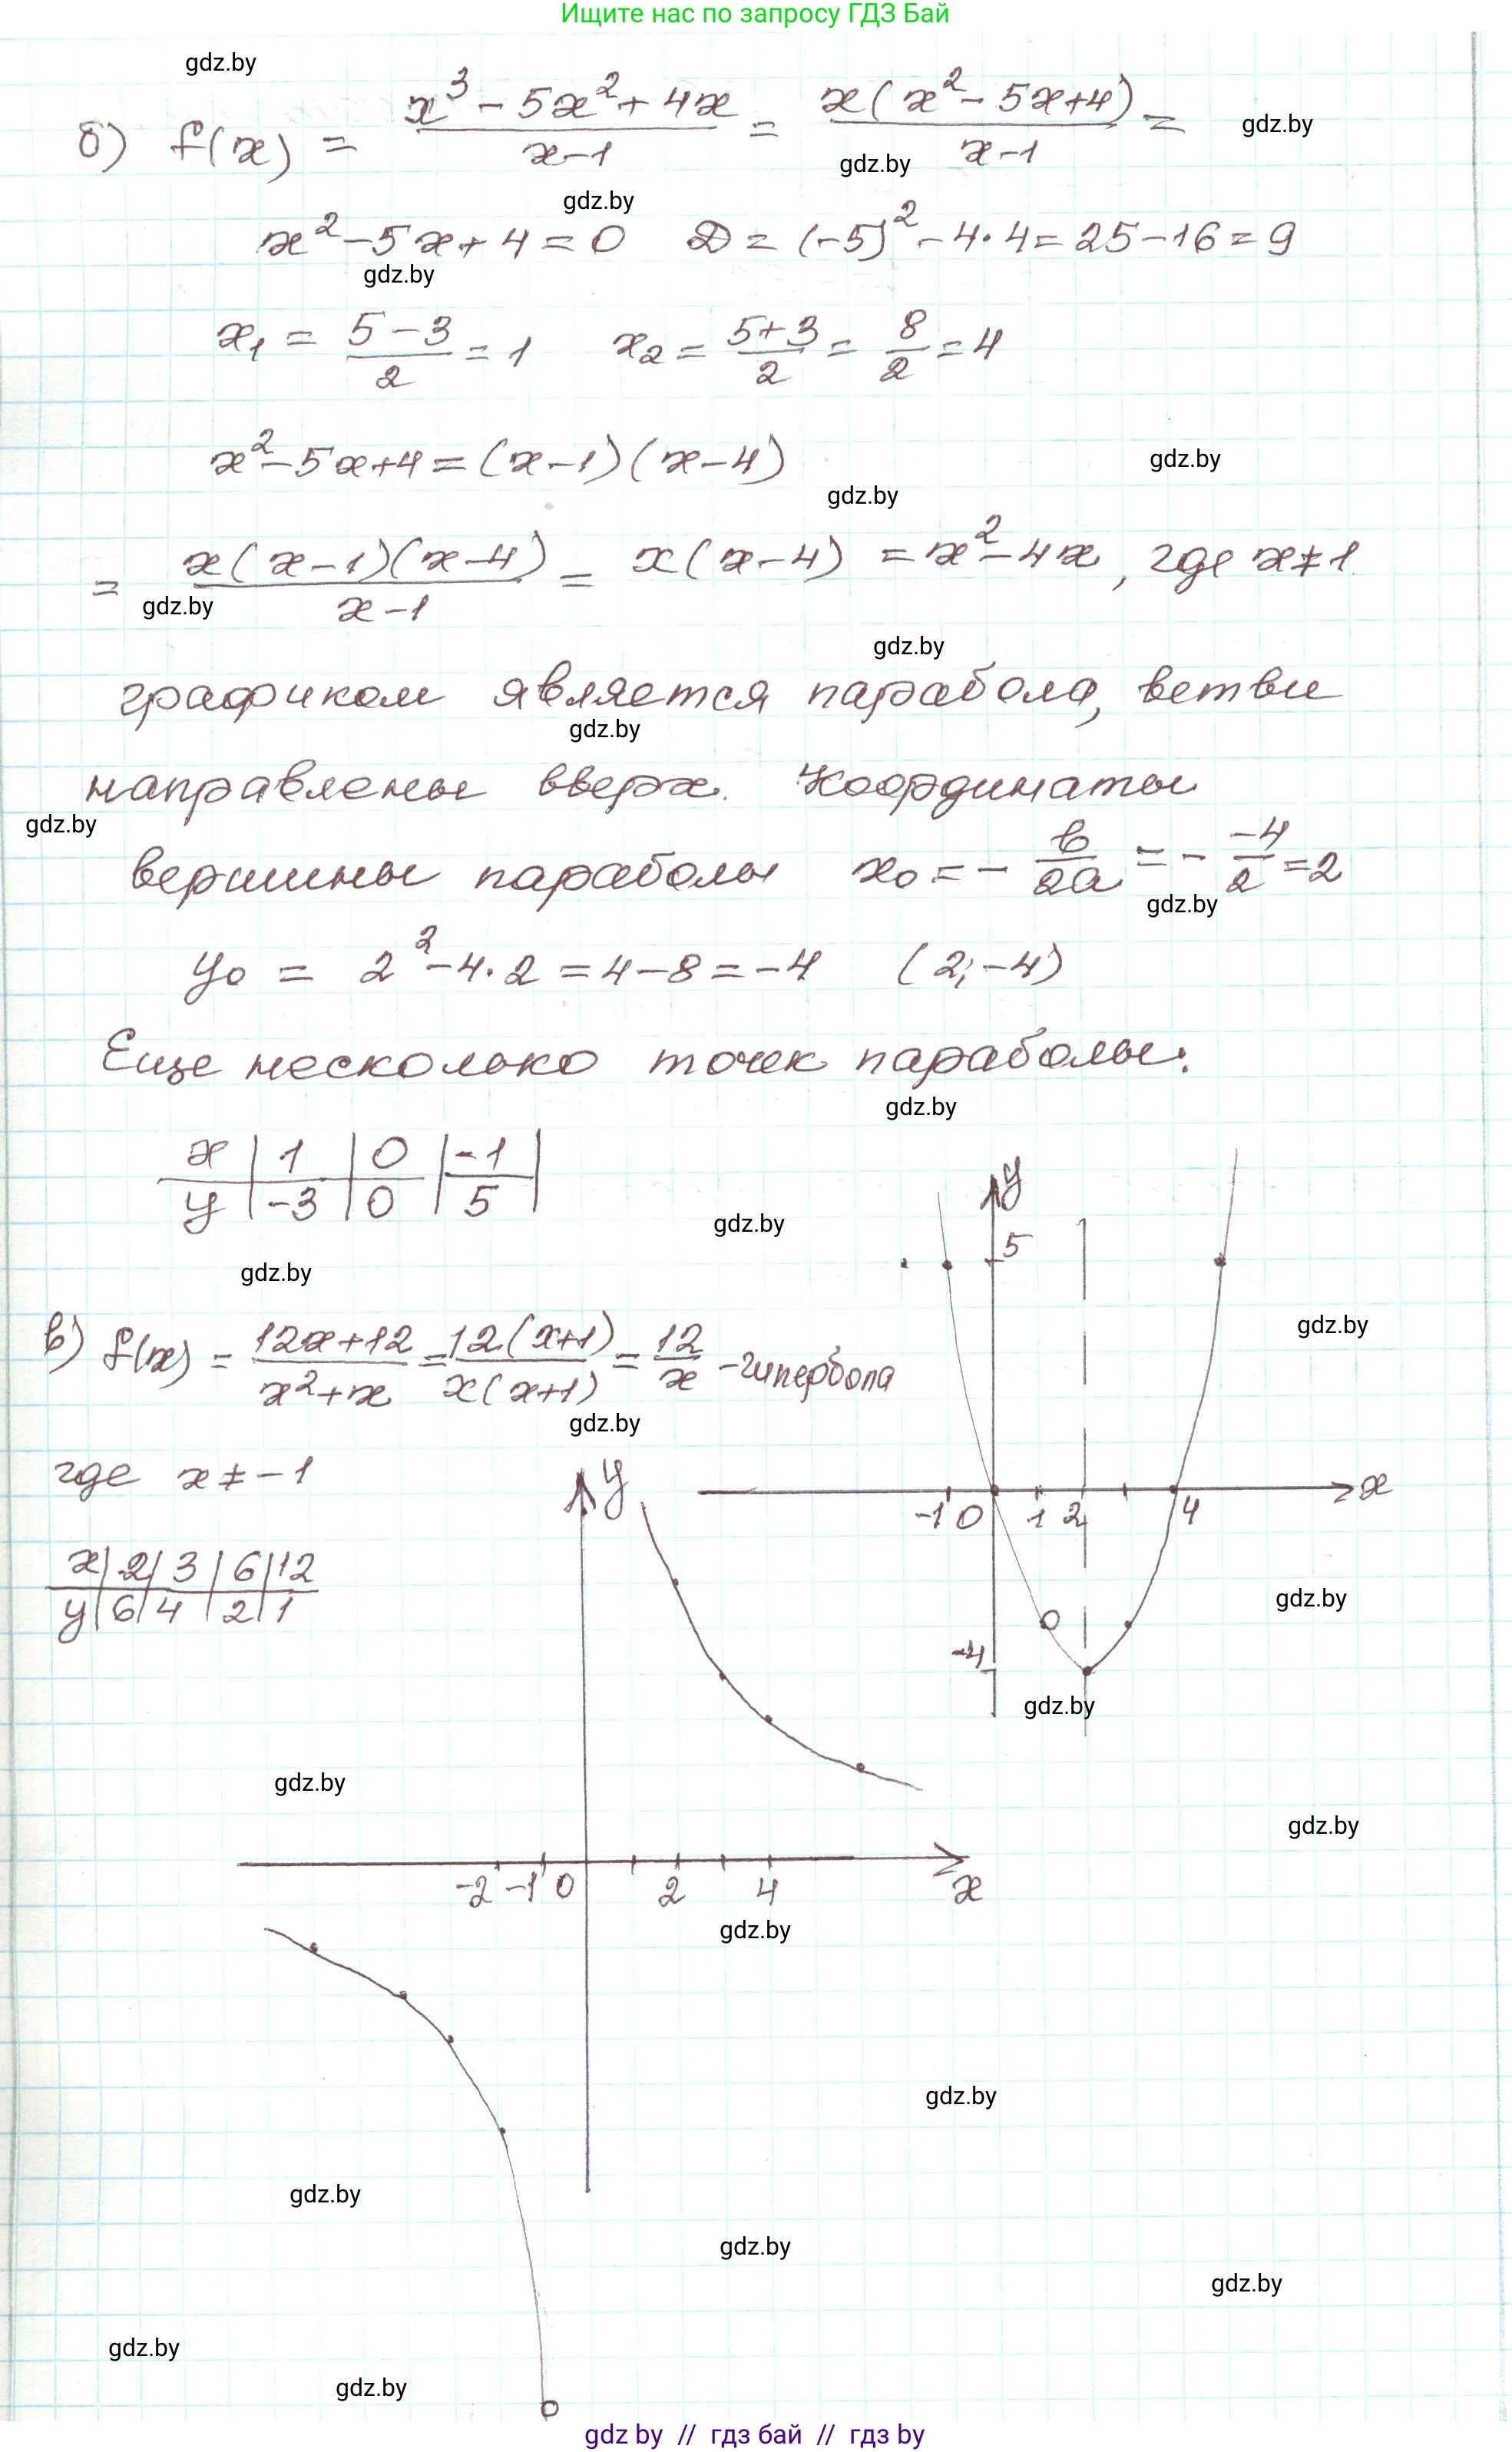 Ищите нас по запросу ГДЗ Бай
gdz.by
б) f(x) = (x³ - 5x² + 4x)/(x-1) = x(x² - 5x+4)/(x-1) =
gdz.by
gdz.by
gdz.by
x² - 5x + 4 = 0 D = (-5)² - 4·4 = 25 - 16 = 9
gdz.by
x₁ = (5-3)/2 = 1 x₂ = (5+3)/2 = 8/2 = 4
x² - 5x+4 = (x-1)(x-4)
gdz.by
gdz.by
= x(x-1)(x-4)/(x-1) = x(x-4) = x² - 4x, где x ≠ 1
gdz.by
gdz.by
графиком является парабола, ветви
gdz.by
направлены вверх. Координаты
gdz.by
вершины параболы x₀ = - b/2a = - -4/2 = 2
gdz.by
y₀ = 2² - 4·2 = 4 - 8 = -4 (2; -4)
Еще несколько точек параболы:
gdz.by
x | 1 | 0 | -1 |
y | -3 | 0 | 5 |
gdz.by
gdz.by
y
5
-1 0 1 2 4 x
-4
gdz.by
gdz.by
gdz.by
в) f(x) = (12x+12)/(x²+x) = 12(x+1)/x(x+1) = 12/x - гипербола
gdz.by
где x ≠ -1
x | 2 | 3 | 6 | 12
y | 6 | 4 | 2 | 1
y
gdz.by
gdz.by
-2 -1 0 2 4 x
gdz.by
gdz.by
gdz.by
gdz.by
gdz.by
gdz.by
gdz.by
gdz by // гдз бай // гдз by